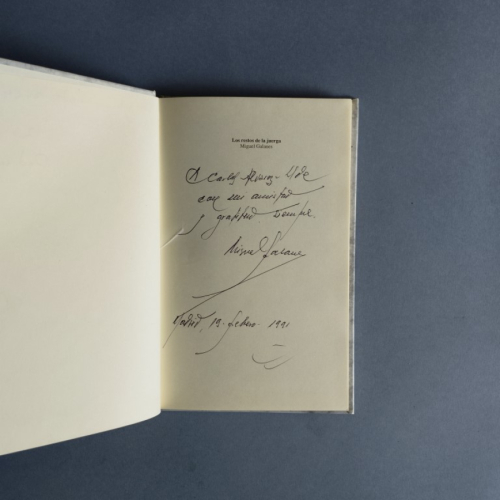 Los restos de la juerga
Miguel Galanes
A Carlos Alvarez-Ude
con mi amistad
y gratitud siempre.
Miguel Galanes
Madrid, 19. febrero. 1991